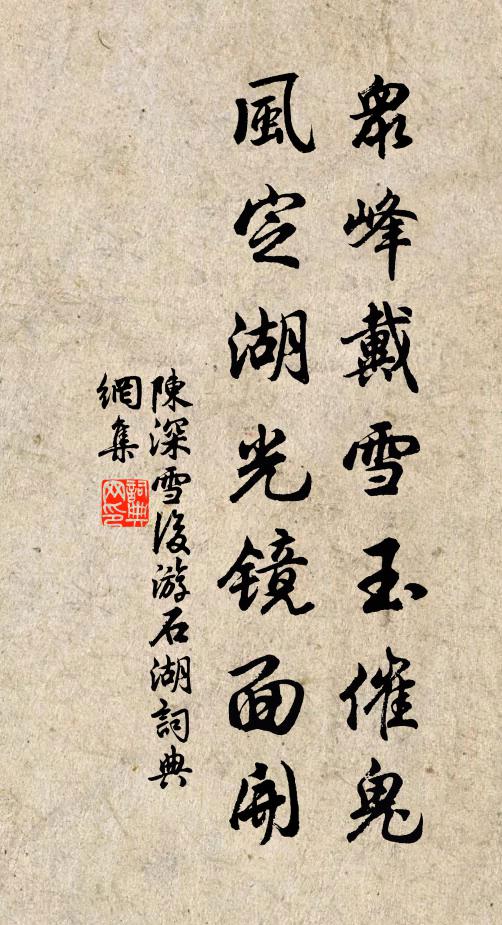 眾峰戴雪玉催鬼
風定湖光鏡面開
陳深雪後游石湖詞典
網集
詞典
网印